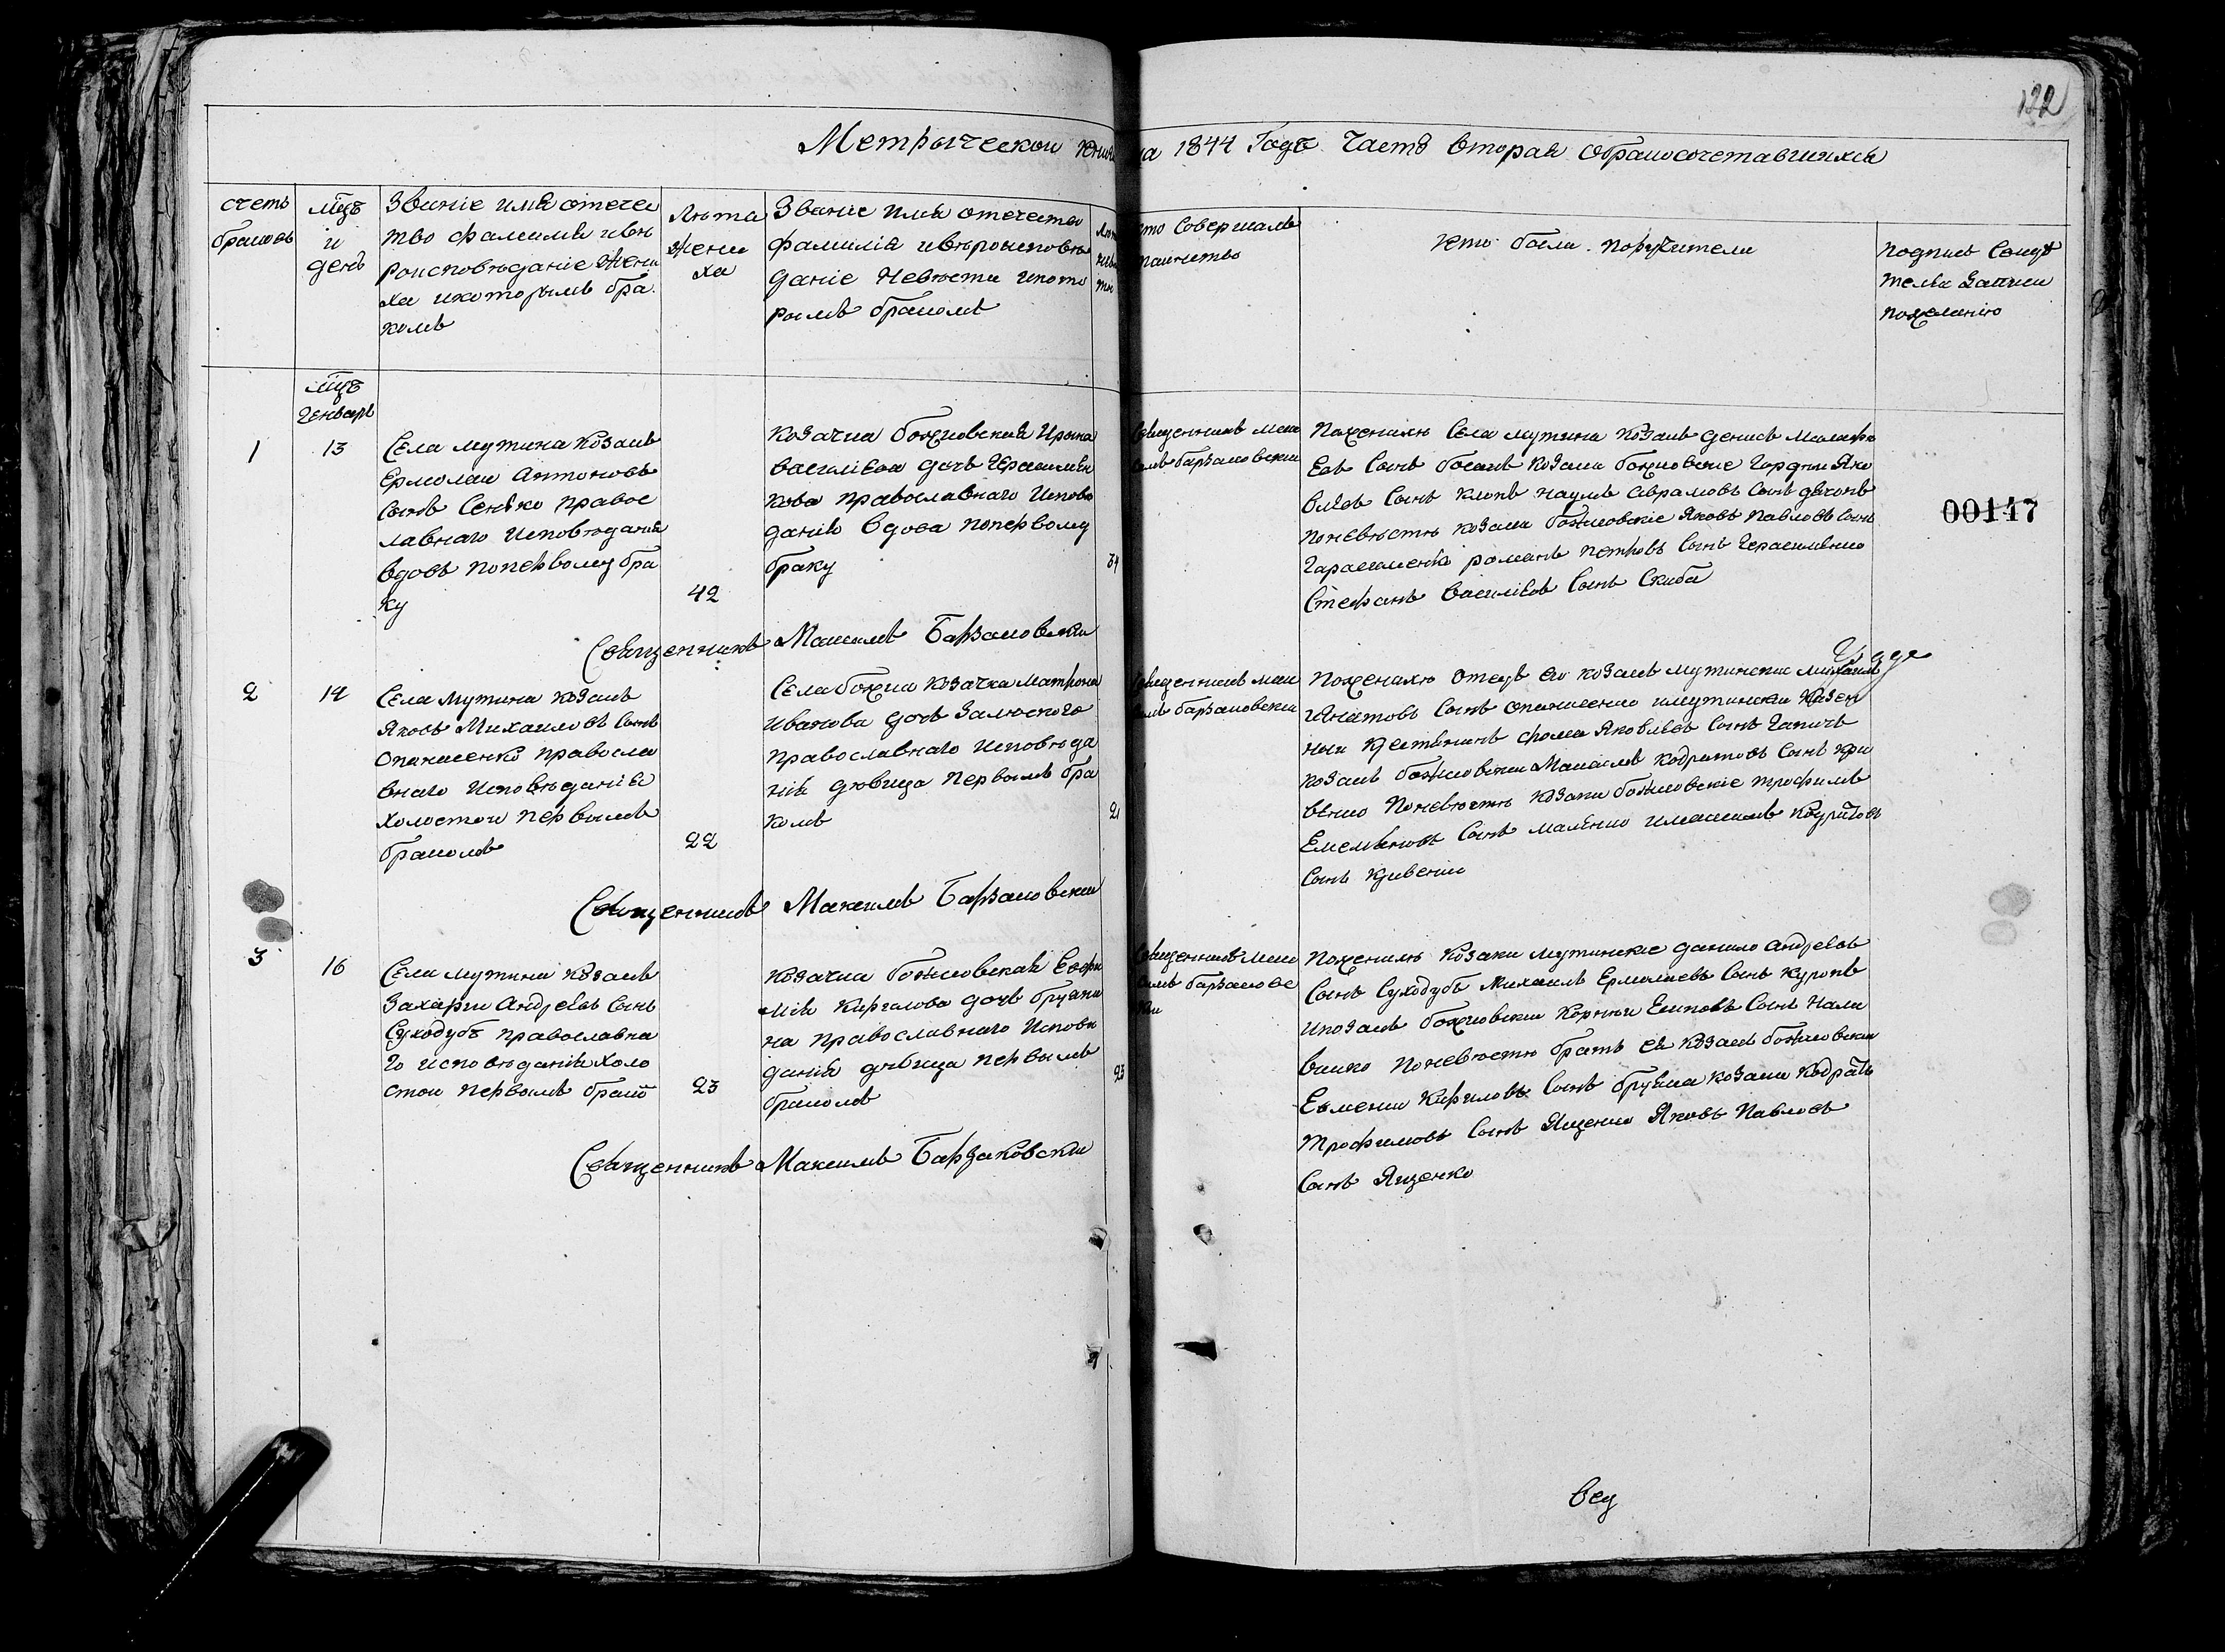 122
Метрыческои книга 1844 Годъ Часть вторая обракосочетавшихся
счетъ
браковъ
мцъ
и
день
Званіе имя отечес
тво фамилия ивѣ
роисповѣданіе жени
ха икоторымъ бра
комъ
Лѣта
жени
ха
Званіе имя отечество
фамилія ивѣроисповѣ
даніе невѣсты икото
рымъ бракомъ
кто Совершалъ
таинство
кто были поручители
подпись Свидѣ
телей записи
пожеланію
мцъ
Генварь
1
13
Села мутина козакъ
Ермолаи Антоновъ
Сынъ Сенько правос
лавнаго исповѣданія
вдовъ поперьвому бра
ку
42
козачка божковская Ирына
василіева дочь Герасимен
кова православнаго исповѣ
данія вдова поперьвому
браку
34
Священникъ мак
симъ барзаковскии
пожениху Села мутина козакъ денисъ малафѣ
евъ Сынъ козаки божковские Гордѣи Яко
влевъ Сынъ клопъ наумъ аврамовъ Сынъ
поневѣсте козаки божковскіе Яковъ павловъ Сынъ
Гарасименко романъ петровъ Сынъ Герасименко
Стефанъ василіевъ Сынъ Скиба
00117
Священникъ Максимъ Барзаковскии
2
14
Села мутина козакъ
Яковъ Михаиловъ Сынъ
Опанасенко правосла
внаго исповѣданія
холостои первымъ
бракомъ
22
Села божка козачка матрона
Иванова дочь
православнаго исповѣда
нія дѣвица первымъ бра
комъ
21
Священникъ мак
симъ барзаковскии
пожениху отецъ его козакъ мутински михаилъ
игнатовъ Сынъ опанасенко имутински казен
ныи крестянинъ фома Яковлевъ Сынъ
козакъ божковски Максимъ кодратовъ Сынъ кри
венко поневѣсте козаки божковскіе трофимъ
Емельяновъ Сынъ имаксимъ кодратовъ
Сынъ кривенко
Священникъ Максимъ Барзаковскии
3
16
Села мутина козакъ
Захарии Андреевъ Сынъ
Суходубъ православна
го исповѣданія холо
стои первымъ брако
23
козачка божковская Евфи
мія кирилова дочь
на православнаго исповѣ
данія дѣвица первымъ
бракомъ
23
Священникъ мак
симъ барзаковс
кии
пожениху козаки мутинскіе данило андреевъ
Сынъ Суходубъ Михаилъ Ермолаевъ Сынъ
икозакъ божковски корнѣи Сынъ Нали
ваико поневѣсте братъ ея козакъ божковски
Евмени кириловъ Сынъ козаки кодратъ
трофимовъ Сынъ Ященко Яковъ Павловъ
Сынъ Ященко
Священникъ Максимъ Барзаковски